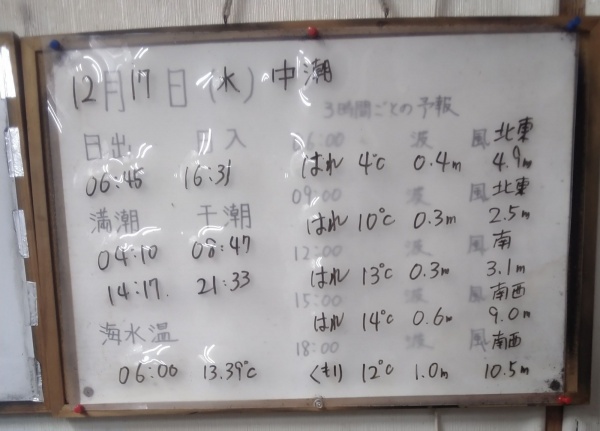 12月17日(水) 中潮
日出 日入
06:45 16:31
満潮 干潮
04:10 08:47
14:17 21:33
海水温
06:00 13.39℃
3時間ごとの予報
06:00 波 風 北東
はれ 4℃ 0.4m 4.9m
09:00 波 風 北東
はれ 10℃ 0.3m 2.5m
12:00 波 風 南
はれ 13℃ 0.3m 3.1m
15:00 波 風 南西
はれ 14℃ 0.6m 9.0m
18:00 波 風 南西
くもり 12℃ 1.0m 10.5m